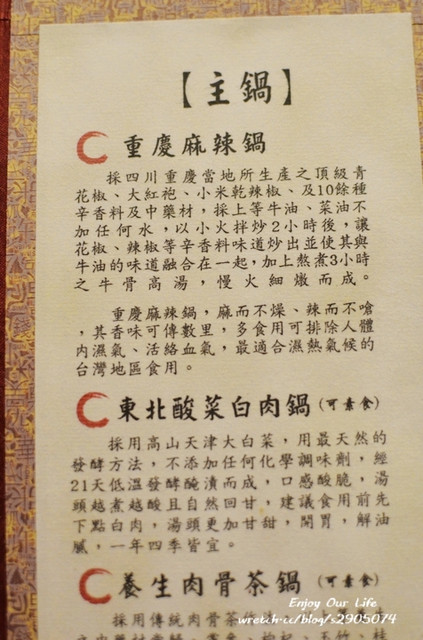 【主鍋】
重慶麻辣鍋
採四川重慶當地所生產之頂級青
花椒、大紅袍、小米乾辣椒、及10餘種
辛香料及中藥材，採上等牛油、菜油不
加任何水，以小火拌炒2小時後，讓
花椒、辣椒等辛香料味道炒出並使其與
牛油的味道融合在一起，加上熬煮3小時
之牛骨高湯，慢火細燉而成。
重慶麻辣鍋，麻而不燥、辣而不嗆
，其香味可傳數里，多食用可排除人體
內濕氣、活絡血氣，最適合濕熱氣候的
台灣地區食用。
東北酸菜白肉鍋(可素食)
採用高山天津大白菜，用最天然的
發酵方法，不添加任何化學調味劑，經
21天低溫發酵醃漬而成，口感酸脆，湯
頭越煮越酸且自然回甘，建議食用前先
下點白肉，湯頭更加甘甜，開胃，解油
膩，一年四季皆宜。
養生肉骨茶鍋(可素食)
採用傳統肉骨茶作
Enjoy Our Life
wretch.cc/blog/s2905074